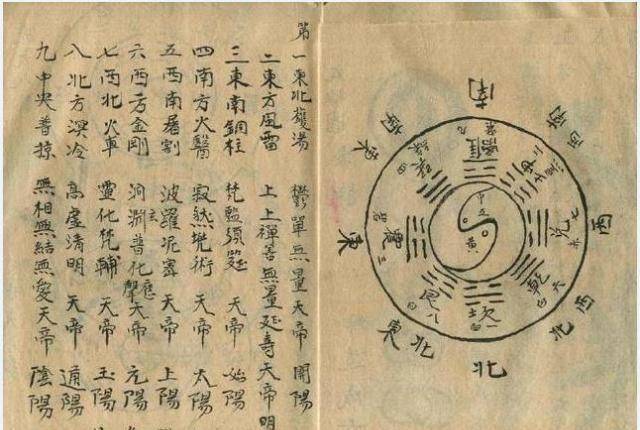 第一東北鑊湯 鬱單無量天帝 開陽
二東方風雷 上上禪善無量延壽天帝 明
三東南銅柱 梵監須延 天帝 始陽
四南方火醫 寂然兜術 天帝 太陽
五西南屠割 波羅泥蜜 天帝 上陽
六西方金剛 洞淵普化應聲天帝 元陽
七西北火車 靈化梵輔 天帝 玉陽
八北方溟冷 高虛清明 天帝 道陽
九中央普掠 無相無結無愛天帝 陰陽
南
西南
西
西北
北
東北
東
東南
離
兌 七
乾 六白
坎 一白
艮 八白
震 三
中五黃